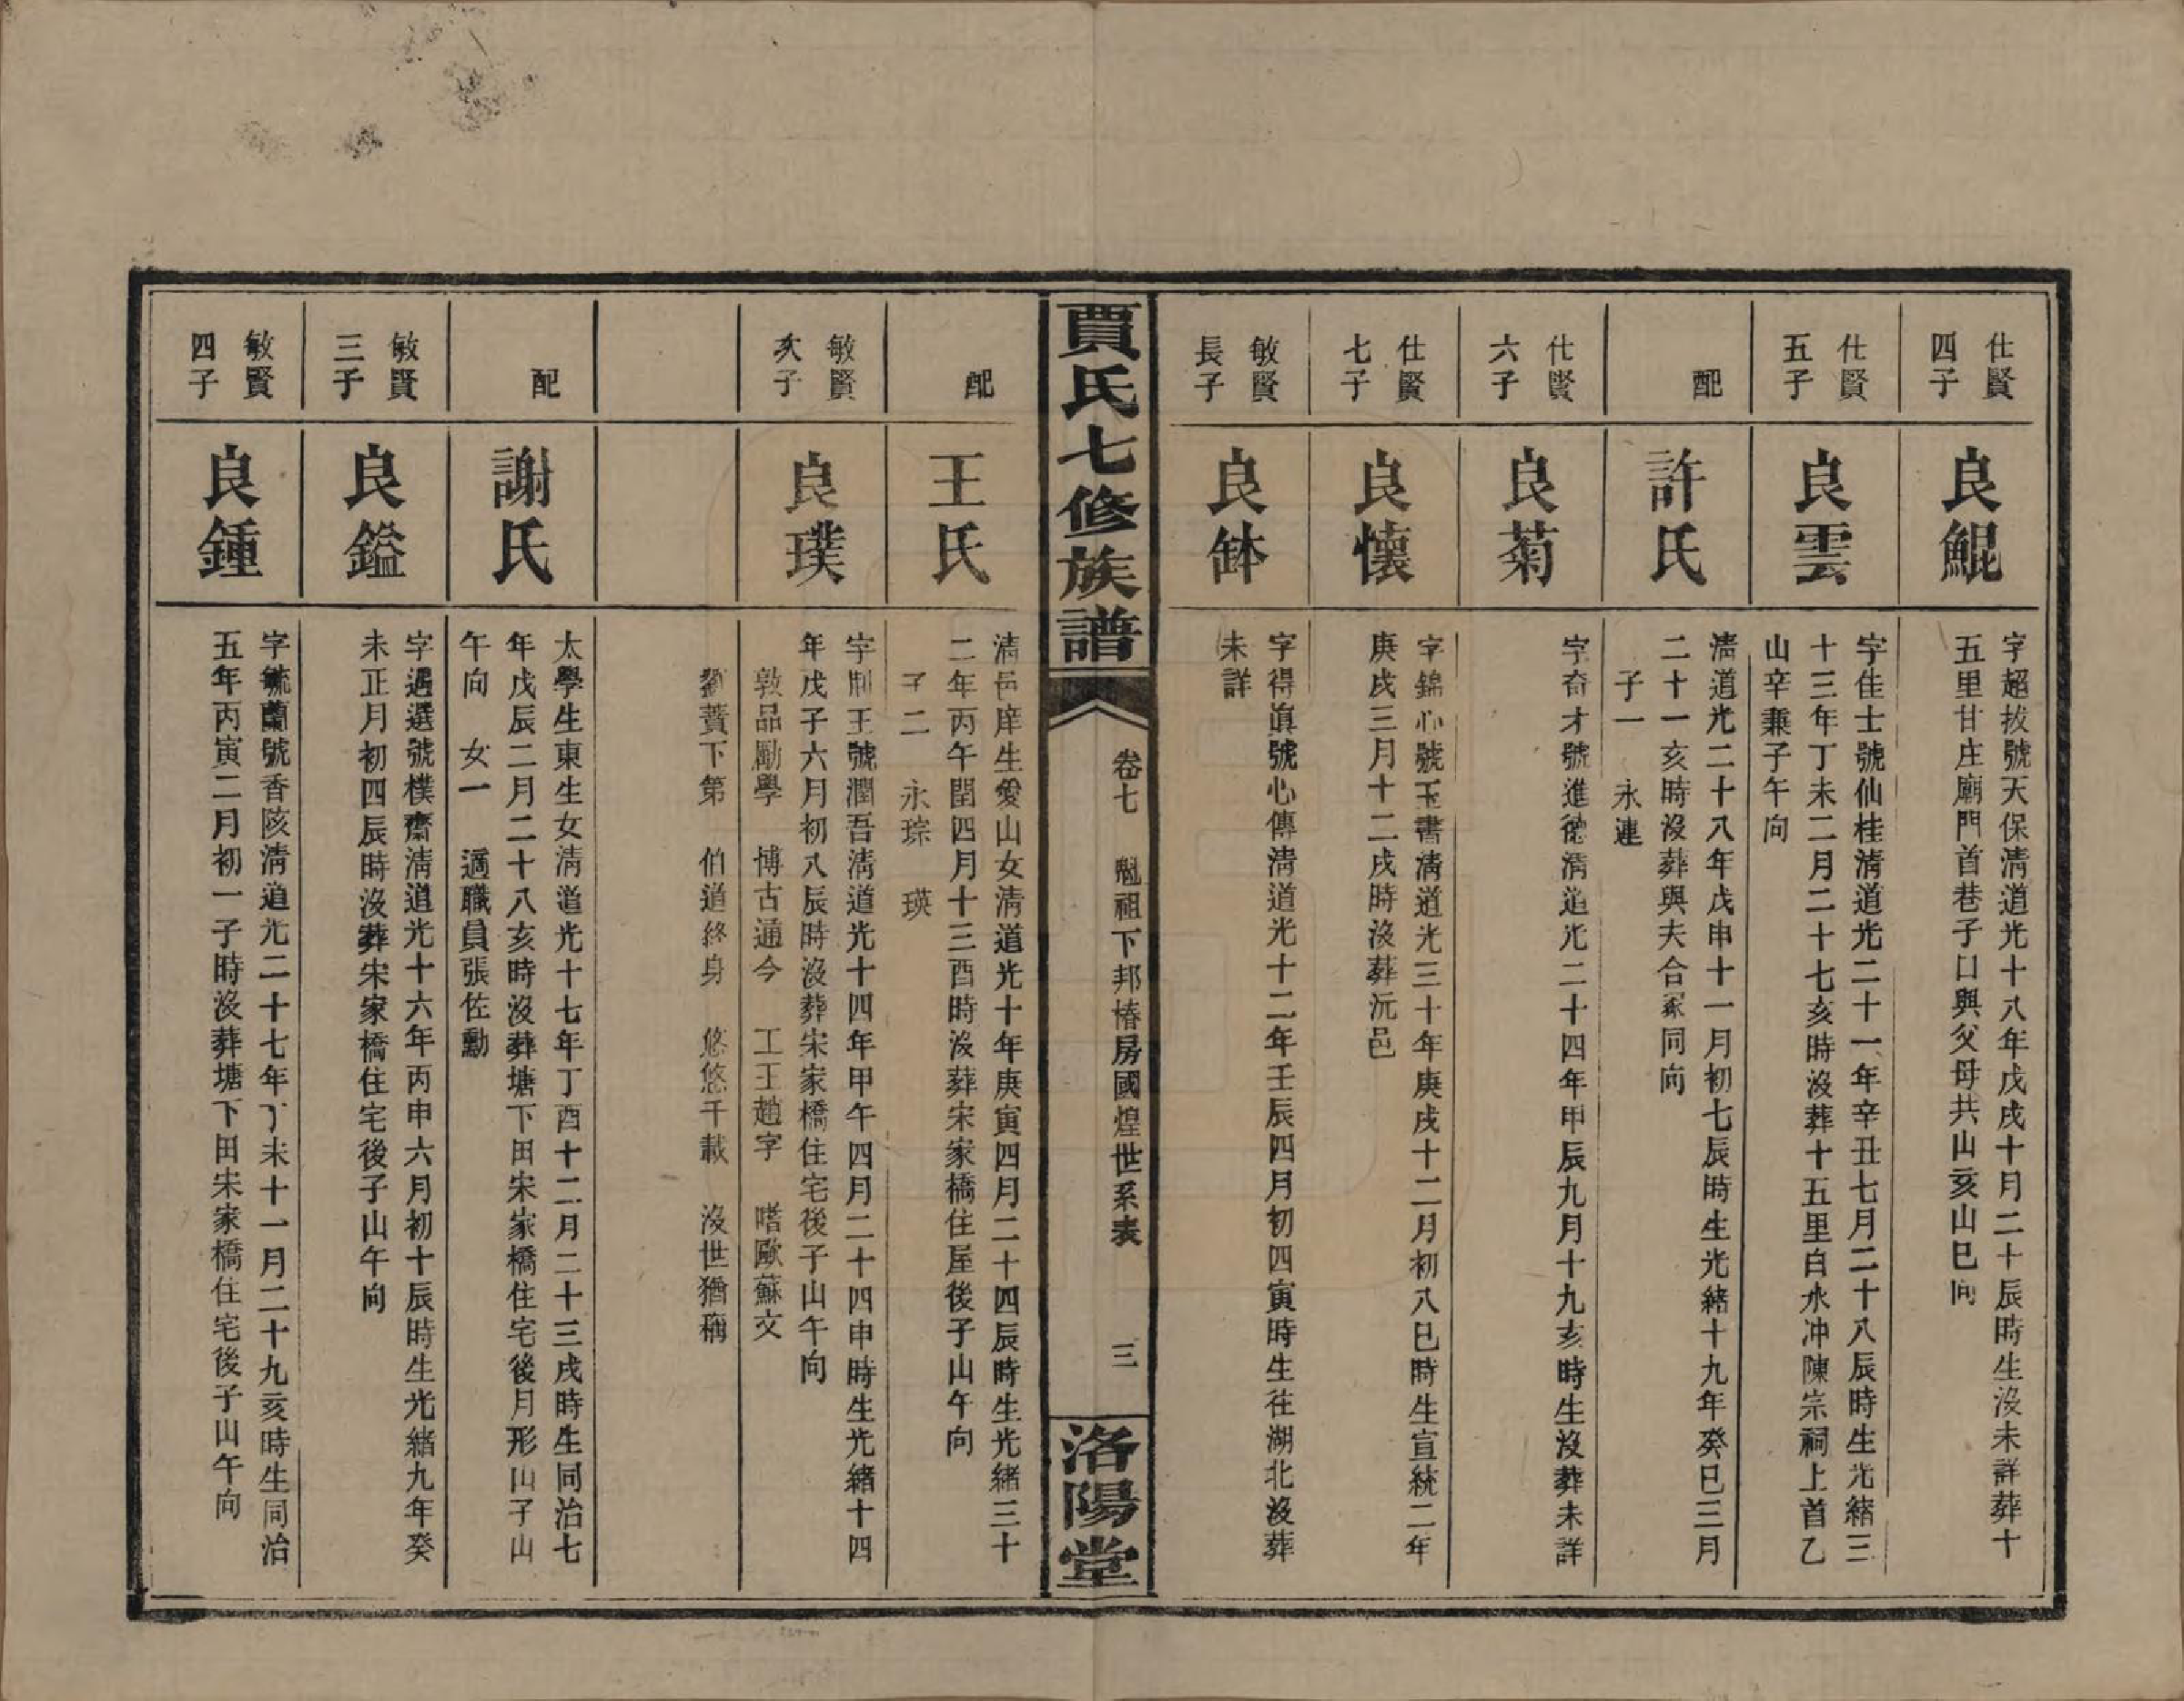 仕賢
四子
良鯤
字超拔號天保清道光十八年戊戌十月二十辰時生沒未詳葬十
五里甘庄廟門首巷子口與父母共山亥山巳向
仕賢
五子
良雲
字佳士號仙桂清道光二十一年辛丑七月二十八辰時生光緒三
十三年丁未二月二十七亥時沒葬十五里白水冲陳宗祠上首乙
山辛兼子午向
配
許氏
清道光二十八年戊申十一月初七辰時生光緒十九年癸巳三月
二十一亥時沒葬與夫合冢同向
子一　永連
仕賢
六子
良菊
字奇才號進德清道光二十四年甲辰九月十九亥時生沒葬未詳
仕賢
七子
良懷
字錦心號玉書清道光三十年庚戌十二月初八巳時生宣統二年
庚戌三月十二戌時沒葬沅邑
敏賢
長子
良缽
字得眞號心傳清道光十二年壬辰四月初四寅時生往湖北沒葬
未詳
賈氏七修族譜
卷七　魁祖下邦椿房國煌世系表　三
洛陽堂
配
王氏
清邑庠生愛山女清道光十年庚寅四月二十四辰時生光緒三十
二年丙午閏四月十三酉時沒葬宋家橋住屋後子山午向
子二　永琮　瑛
敏賢
次子
良璞
字荆玉號潤吾清道光十四年甲午四月二十四申時生光緒十四
年戊子六月初八辰時沒葬宋家橋住宅後子山午向
敦品勵學　博古通今　工王趙字　嗜歐蘇文
劉蕡下第　伯道終身　悠悠千載　沒世猶稱
配
謝氏
太學生東生女清道光十七年丁酉十二月二十三戌時生同治七
年戊辰二月二十八亥時沒葬塘下田宋家橋住宅後月形山子山
午向　女一　適職員張佐勳
敏賢
三子
良鎰
字遇選號樸齋清道光十六年丙申六月初十辰時生光緒九年癸
未正月初四辰時沒葬宋家橋住宅後子山午向
敏賢
四子
良鍾
字毓蘭號香陔清道光二十七年丁未十一月二十九亥時生同治
五年丙寅二月初一子時沒葬塘下田宋家橋住宅後子山午向